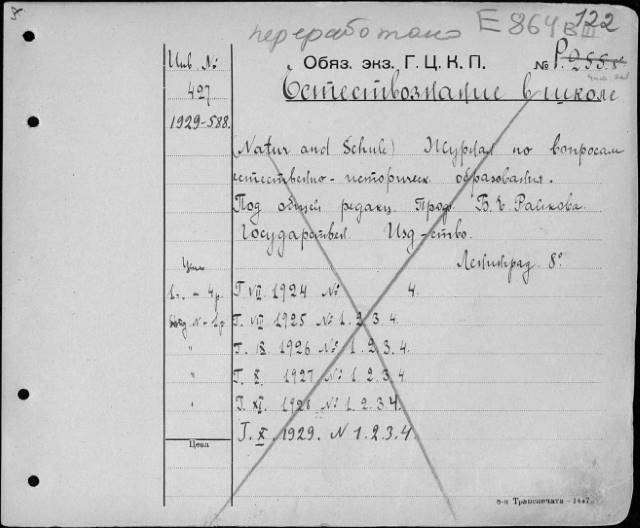 переработано Е 864 122
ВIII
Инв. №
Обяз. экз. Г. Ц. К. П. № Р. 255.
407
Естествознание в школе
1929-588.
(Natur and Schule) Журнал по вопросам
естественно-историческ образования.
Под общей редакц. Проф. Б. Е Райкова.
Государствен. Изд-ство.
Ленинград 8°
Цена
1.. - 4р. Г. VII. 1924 № 4.
N - 1р Г. VIII 1925 № 1. 2. 3. 4.
" Г. IX. 1926 № 1. 2. 3. 4.
" Г. X. 1927 № 1. 2. 3. 4
" Г. XI. 1928 № 1. 2. 3. 4.
Г. X. 1929. N 1. 2. 3. 4.
Цена
8-я Транспечати - 1447